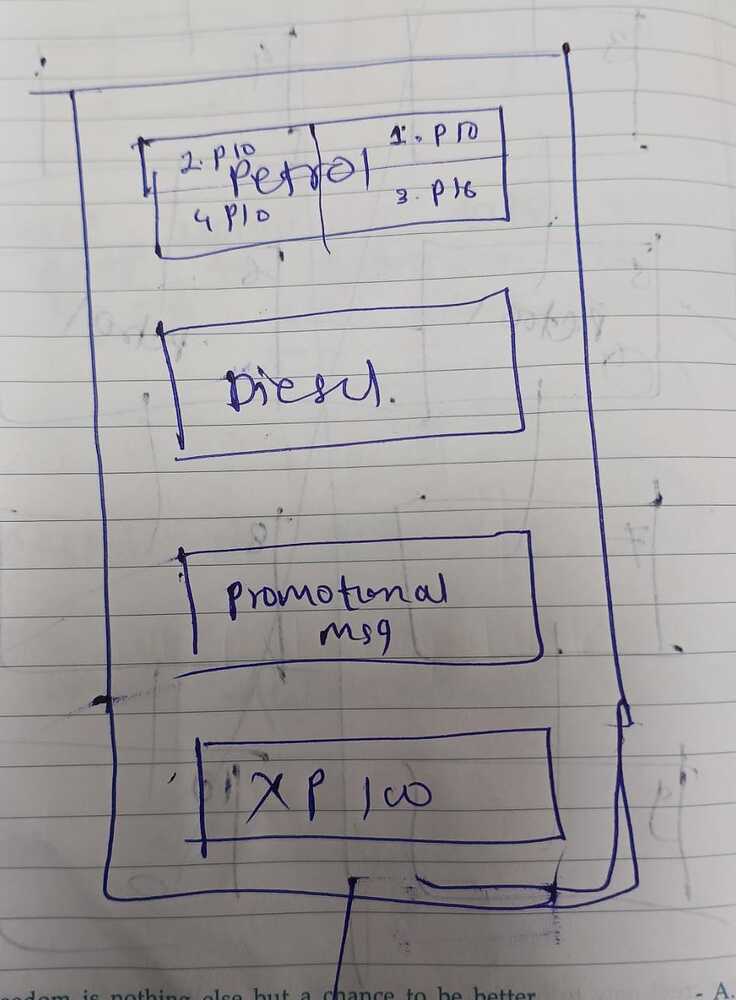 2. P10
1. P10
Petrol
4 P10
3. P16
Diesel.
Promotional
msg
XP 100
eedom is nothing else but a chance to be better
- A.